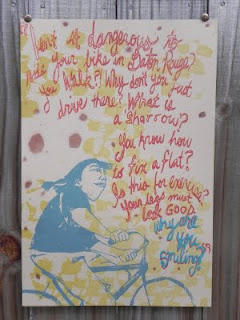 "Isn't it dangerous to
ride your bike in Baton Rouge?
You Walk?! Why don't you just
drive there? What is
a sharrow?
You know how
to fix a flat?
Is this for exercise?
Your legs must
look GOOD
why are
you
smiling?"